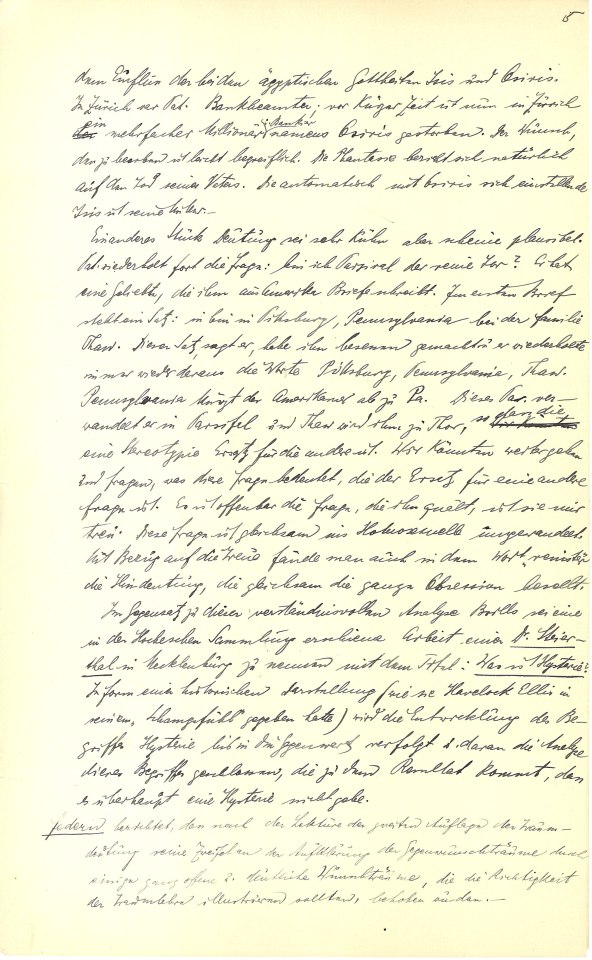 5
dem Einfluss der beiden ägyptischen Gottheiten Isis und Osiris.
In Zürich war Pat. Bankbeamter; vor kurzer Zeit ist nun in Zürich
ein mehrfacher Millionär u. Bankier namens Osiris gestorben. Der Wunsch,
den zu beerben ist leicht begreiflich. Die Phantasie bezieht sich natürlich
auf den Tod seines Vaters. Die automatisch mit Osiris sich einstellende
Isis ist seine Mutter.—
Ein anderes Stück Deutung sei sehr kühn aber scheine plausibel.
Pat. wiederholt fort die Frage: bin ich Parzival der reine Tor? Er hat
eine Geliebte, die ihm aus Amerika Briefe schreibt. Im ersten Brief
steht ein Satz: ich bin in Pittsburg, Pennsylvania bei der Familie
Thaw. Dieser Satz, sagt er, habe ihn besessen gemacht u. er wiederholte
immer wieder daraus die Worte Pittsburg, Pennsylvania, Thaw.
Pennsylvania kürzt der Amerikaner ab zu Pa. Dieses Pa. ver-
wandelt er in Parsifal und Thaw wird ihm zu Thor, so dass die
eine Stereotypie Ersatz für die andere ist. Wir könnten weitergehen
und fragen, was diese Frage bedeutet, die der Ersatz für eine andere
Frage ist. Es ist offenbar die Frage, die ihn quält, ist sie mir
treu. Diese Frage ist gleichsam ins Homosexuelle umgewandelt.
Mit Bezug auf die Treue fände man auch in dem Wort
die Hindeutung, die gleichsam die ganze Obsession beseelt.
Im Gegensatz zu dieser verständnisvollen Analyse sei eine
in der Hocheschen Sammlung erschienene Arbeit eines Dr. Steyer-
thal in Mecklenburg zu nennen mit dem Titel: Was ist Hysterie?
In Form einer historischen Darstellung (wie sie Havelock Ellis in
seinem „Schamgefühl“ gegeben hatte) wird die Entwicklung des Be-
griffes Hysterie bis in die Gegenwart verfolgt u. daran die Analyse
dieses Begriffes geschlossen, die zu dem Resultat kommt, dass
es überhaupt eine Hysterie nicht gebe.
Federn berichtet, dass nach der Lektüre der zweiten Auflage der Traum-
deutung seine Zweifel an der Aufklärung der Gegenwunschträume durch
einige ganz offene u. deutliche Wunschträume, die die Richtigkeit
der Traumlehre illustrieren sollten, behoben wurden.—